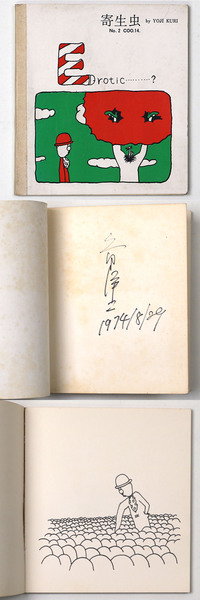 寄生虫 by YOJI KURI
No. 2 COO.14.
Erotic………?
久里洋二
1974/8/29